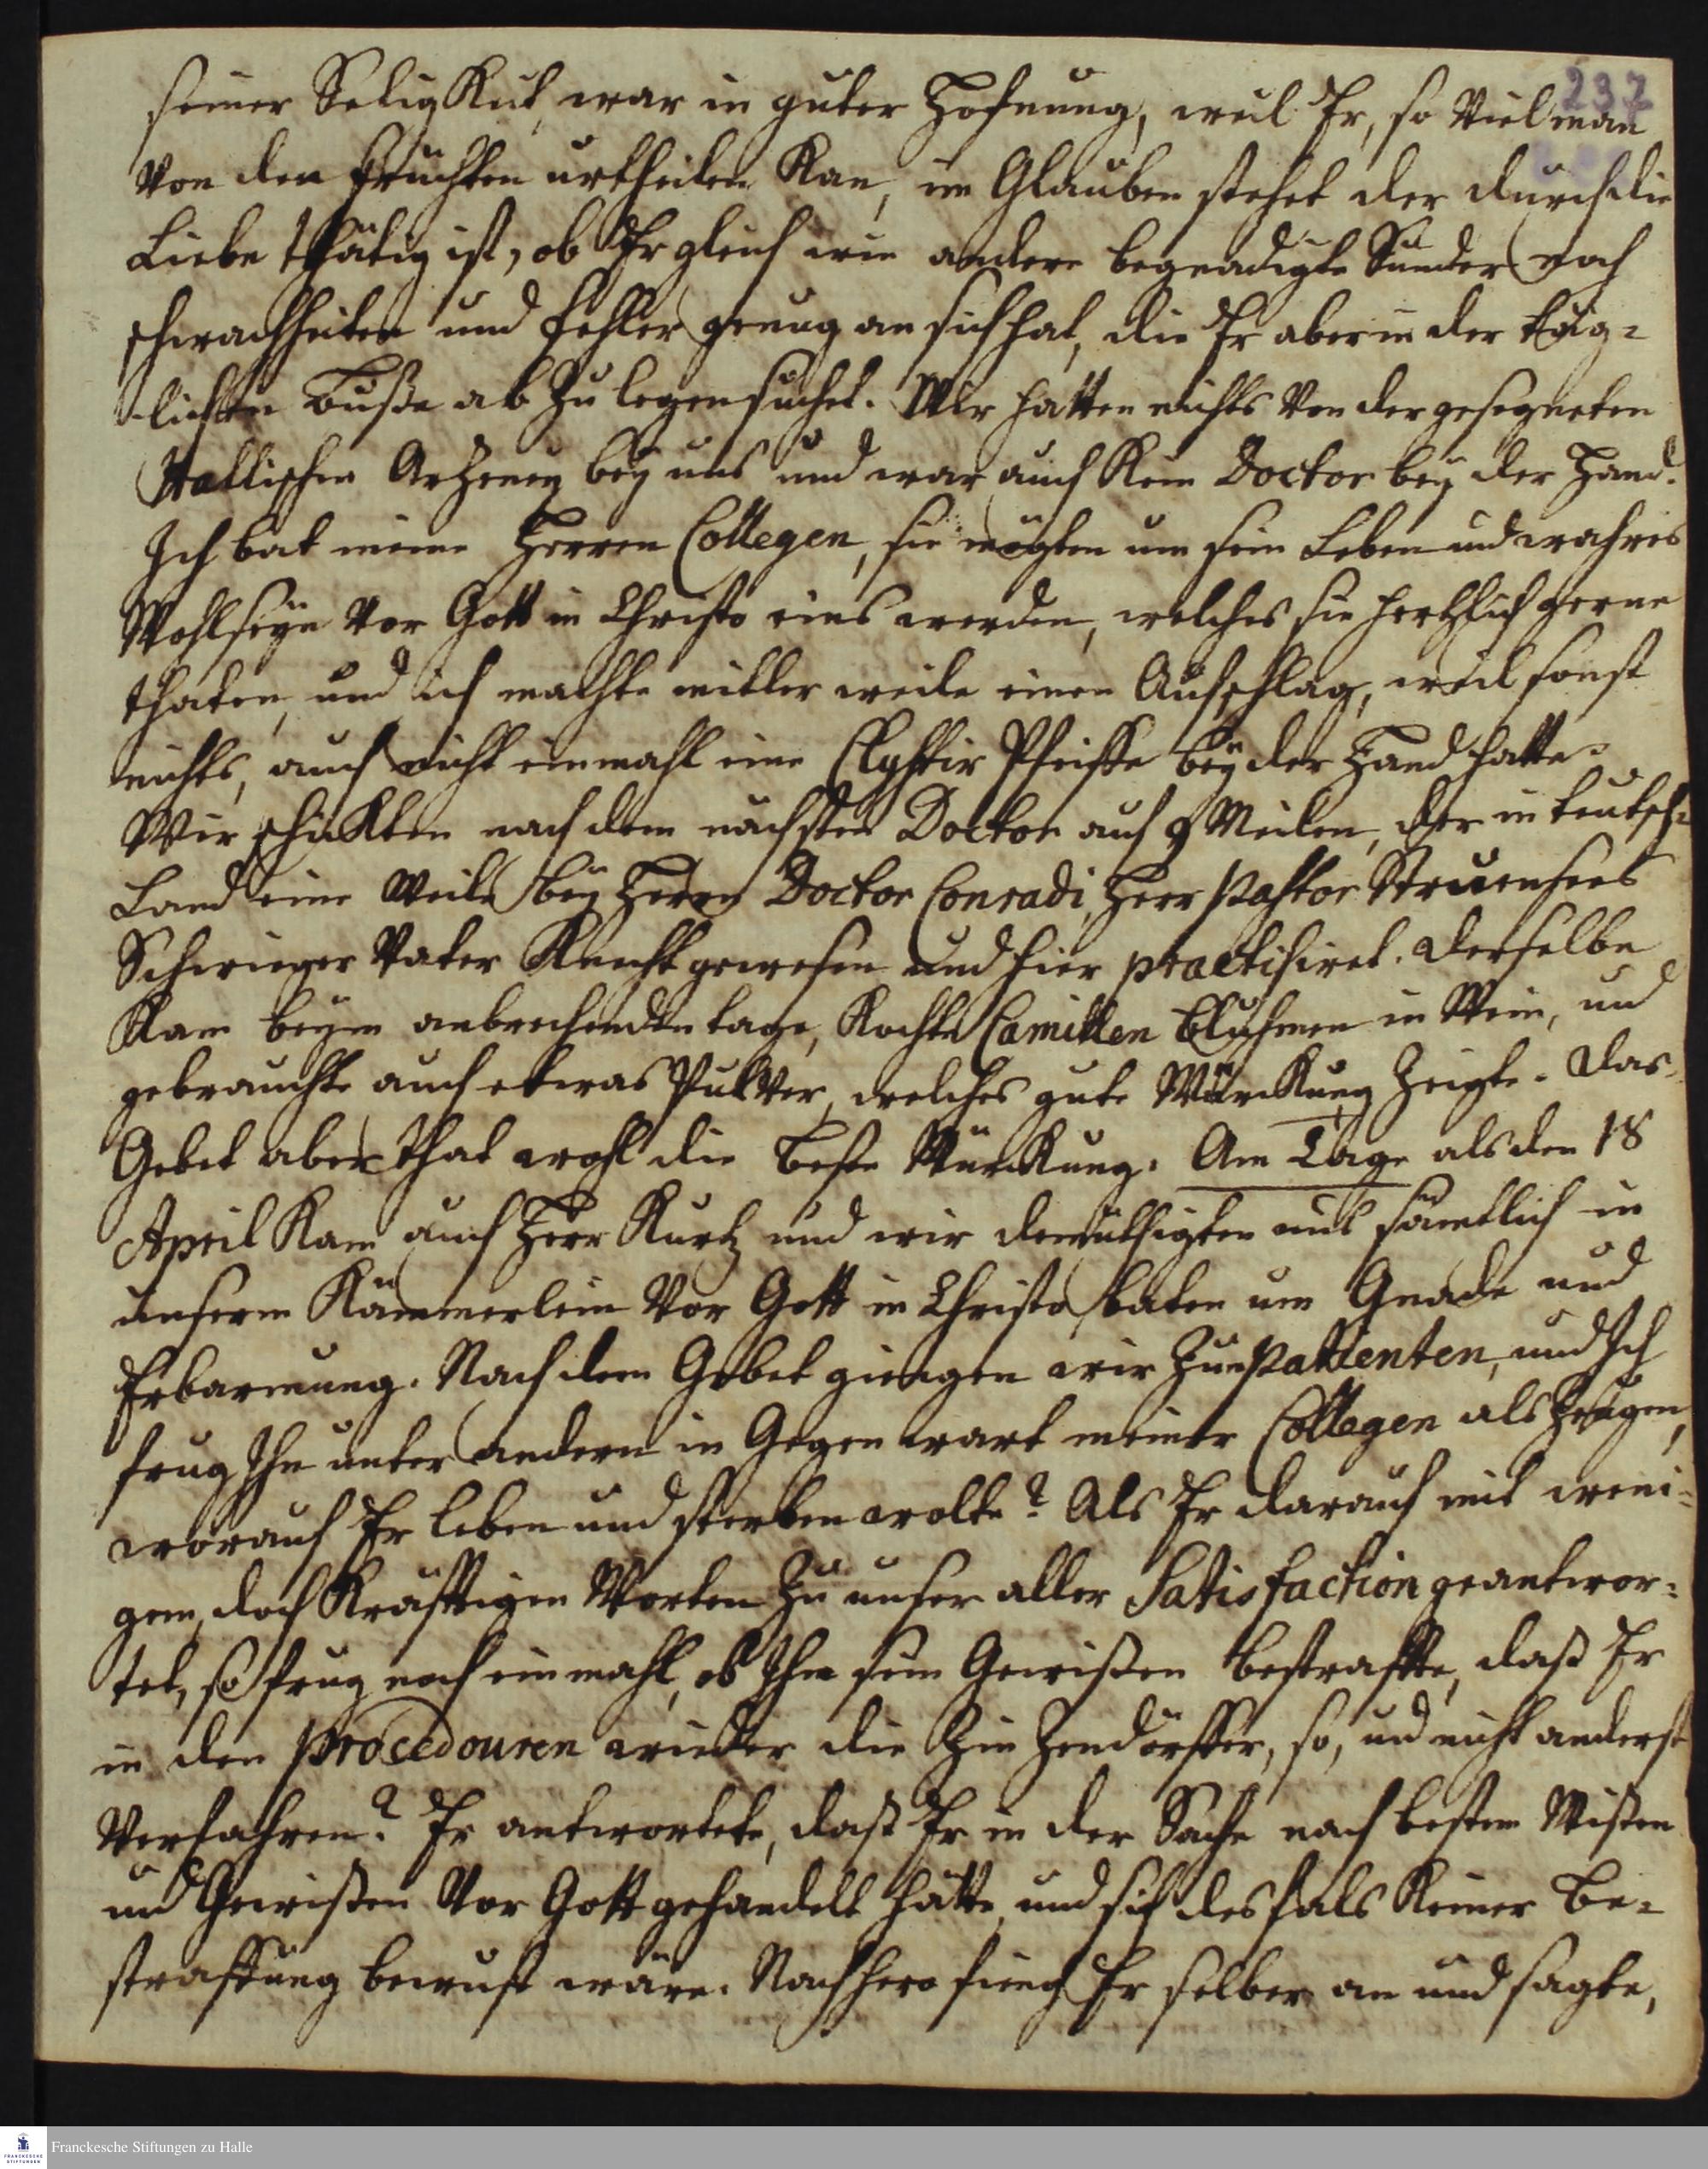 237
seiner Seligkeit, war in guter Hofnung, weil Er, so viel man
von den Früchten urtheilen kan, im Glauben stehet der durch die
Liebe thätig ist, ob Er gleich wie andere begnadigte Sünder noch
schwachheiten und Fehler genug an sich hat, die Er aber in der täg-
lichen Buße ab zu legen suchet. Wir hatten nichts von der gesegneten
Hallischen Artzeney bey uns und war auch kein Doctor bey der Hand.
Ich bat meine Herren Collegen, sie mögten um sein Leben und wahres
Wohlseyn vor Gott in Christo eins werden, welches sie hertzlich gerne
thaten, und ich machte mitler weile einen Aufschlag, weil sonst
nichts, auch nicht einmahl eine Clystir Pfeiffe bey der Hand hatte.
Wir schickten nach dem nächsten Doctor auf 9 Meilen, der in teutsch-
Land eine Weile bey Herrn Doctor Conradi, Herr Pastor Struensees
Schwieger Vater Knecht gewesen und hier practisiret. Derselbe
kam beym anbrechenden tage, kochte Camillen Bluhmen in Wein, und
gebrauchte auch etwas Pulver, welches gute Würckung zeigte. Das
Gebet aber that wohl die beste Würckung. Am Tage als den 18
April kam auch Herr Kurtz und wir demüthigten uns sämtlich in
unserm Kämmerlein vor Gott in Christo, baten um Gnade und
Erbarmung. Nach dem Gebet giengen wir zum Patienten, und Ich
frug Ihn unter andern in Gegenwart meiner Collegen als Zeugen,
worauf Er leben und sterben wolte? Als Er darauf mit weni-
gen, doch kräfftigen Worten zu unser aller Satisfaction geantwor-
tet, so frug noch einmahl, ob Ihn sein Gewißen bestraffte, daß Er
in den Procedouren wieder die Zinzendörffer, so, und nicht anderst
verfahren? Er antwortete, daß Er in der Sache nach bestem Wißen
und Gewißen vor Gott gehandelt hätte, und sich desfals keiner Be-
straffung bewust wäre. Nachhero fieng Er selber an und sagte,
Franckesche Stiftungen zu Halle